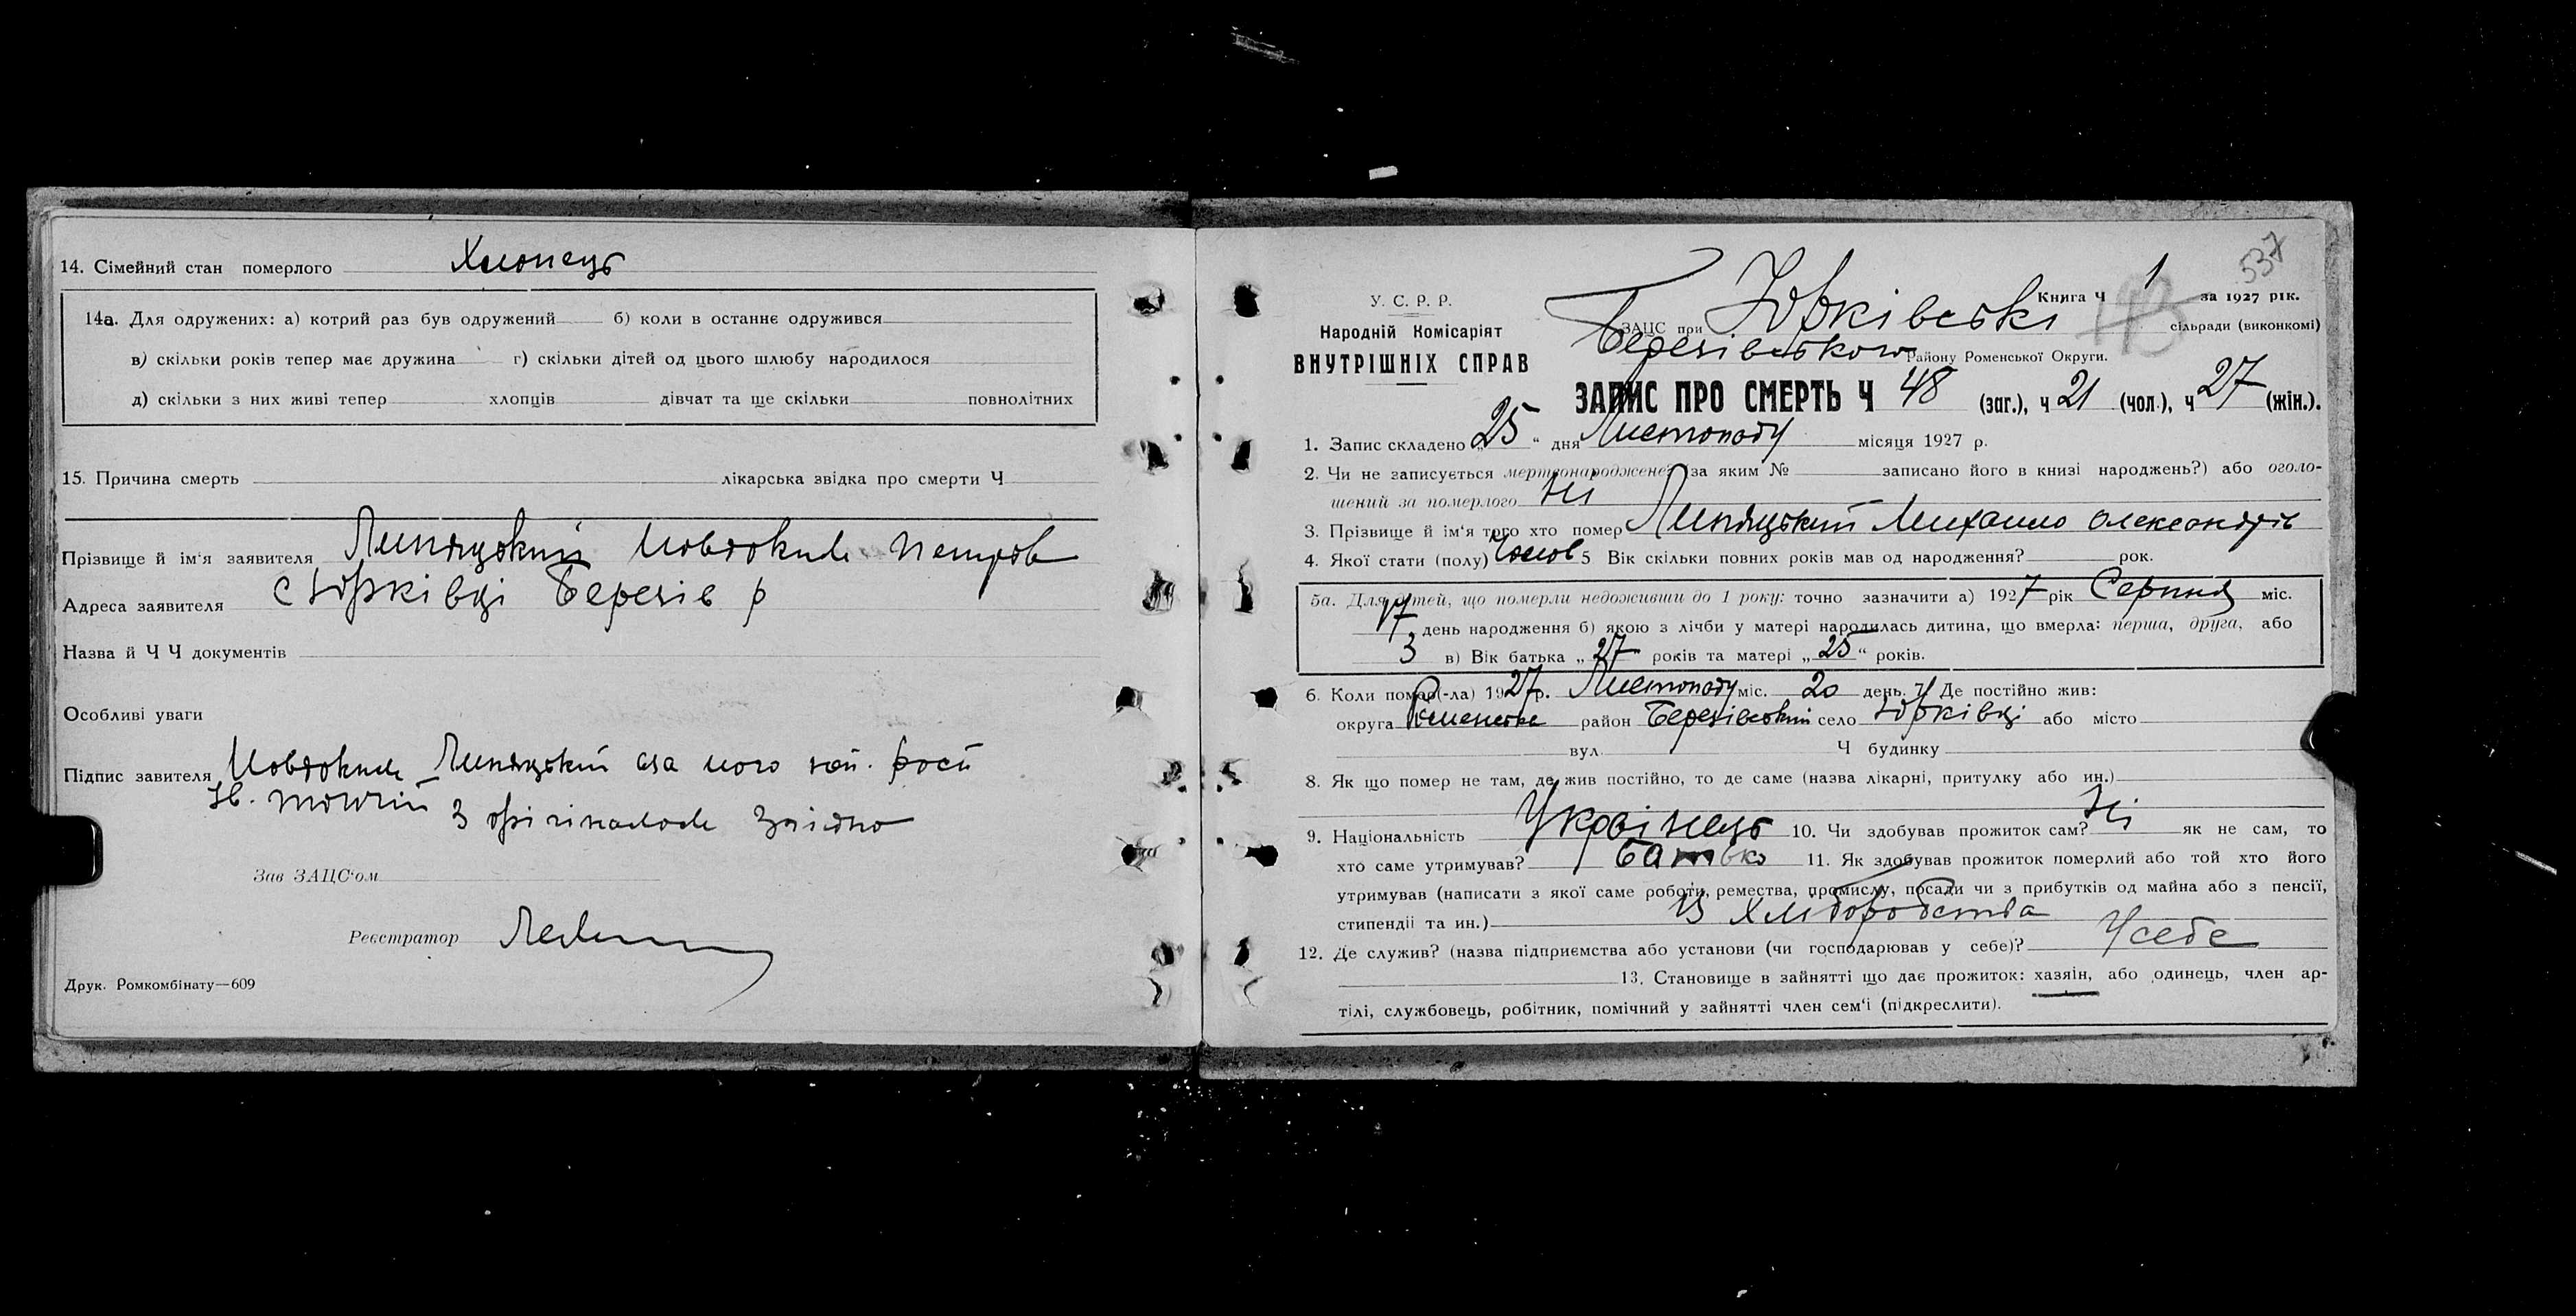 14. Сімейний стан померлого Хлопець
14а. Для одружених: а) котрий раз був одружений б) коли в останнє одружився
в) скільки років тепер має дружина г) скільки дітей од цього шлюбу народилося
д) скільки з них живі тепер хлопців дівчат та ще скільки повнолітних
15. Причина смерть лікарська звідка про смерти Ч
Прізвище й ім'я заявителя Липяцький Явдоким Петров
Адреса заявителя с Юрківці Березів р
Назва й Ч Ч документів
Особливі уваги
Підпис завителя Явдоким Липяцький а за його
З орігіналом Згідно
Зав ЗАЦС'ом
Реєстратор
Друк. Ромкомбінату—609
537
У. С. Р. Р.
Народній Комісаріят
ВНУТРІШНІХ СПРАВ
Книга Ч 1 за 1927 рік.
ЗАЦС при Юрківські сільради (виконкомі)
Березівського Району Роменської Округи.
ЗАПИС ПРО СМЕРТЬ Ч 48 (заг.), ч 21 (чол.), ч 27 (жін.).
1. Запис складено „25“ дня Листопаду місяця 1927 р.
2. Чи не записується мертвонароджене? (за яким № записано його в книзі народжень?) або оголо-
шений за померлого Ні
3. Прізвище й ім'я того хто помер Липяцький Михайло Олександрів
4. Якої стати (полу) Чолов 5 Вік скільки повних років мав од народження? рок.
5а. Для дітей, що померли недоживши до 1 року: точно зазначити а) 1927 рік Серпня міс.
день народження б) якою з лічби у матері народилась дитина, що вмерла: перша, друга, або
3 в) Вік батька „27“ років та матері „25“ років.
6. Коли помер(-ла) 1927 р. Листопаду міс. 20 день. 7) Де постійно жив:
округа Роменська район Березівський село Юрківці або місто
вул. Ч будинку
8. Як що помер не там, де жив постійно, то де саме (назва лікарні, притулку або ин.)
9. Національність Українець 10. Чи здобував прожиток сам? Ні як не сам, то
хто саме утримував? батько 11. Як здобував прожиток померлий або той хто його
утримував (написати з якої саме роботи, ремества, промислу, посади чи з прибутків од майна або з пенсії,
стипендії та ин.) Із Хліборобства
12. Де служив? (назва підприємства або установи (чи господарював у себе)? У себе
13. Становище в зайнятті що дає прожиток: хазяін, або одинець, член ар-
тілі, службовець, робітник, помічний у зайнятті член сем'ї (підкреслити).